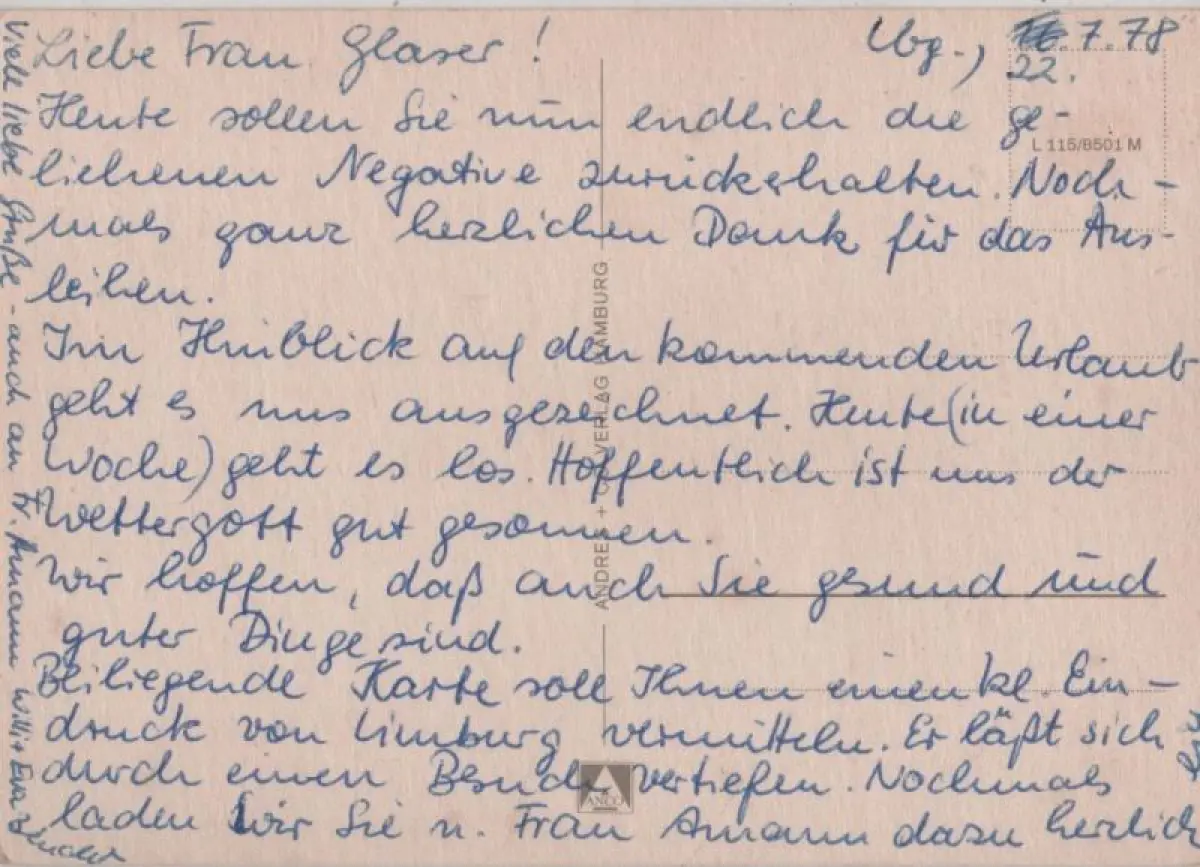 Lbg., 22.7.78
Liebe Frau Glaser!
Heute sollen Sie nun endlich die ge-
liehenen Negative zurückerhalten. Noch-
mals ganz herzlichen Dank für das Aus-
leihen.
Im Hinblick auf den kommenden Urlaub
geht es uns ausgezeichnet. Heute (in einer
Woche) geht es los. Hoffentlich ist uns der
Wettergott gut gesonnen.
Wir hoffen, daß auch Sie gesund und
guter Dinge sind.
Beiliegende Karte soll Ihnen einen kl. Ein-
druck von Limburg vermitteln. Er läßt sich
durch einen Besuch vertiefen. Nochmals
laden wir Sie u. Frau Amann dazu herzlich
ein.
Viele liebe Grüße - auch an Fr. Amann Willi + Eva
L 115/8501 M
ANDRES + CO VERLAG HAMBURG
ANCO